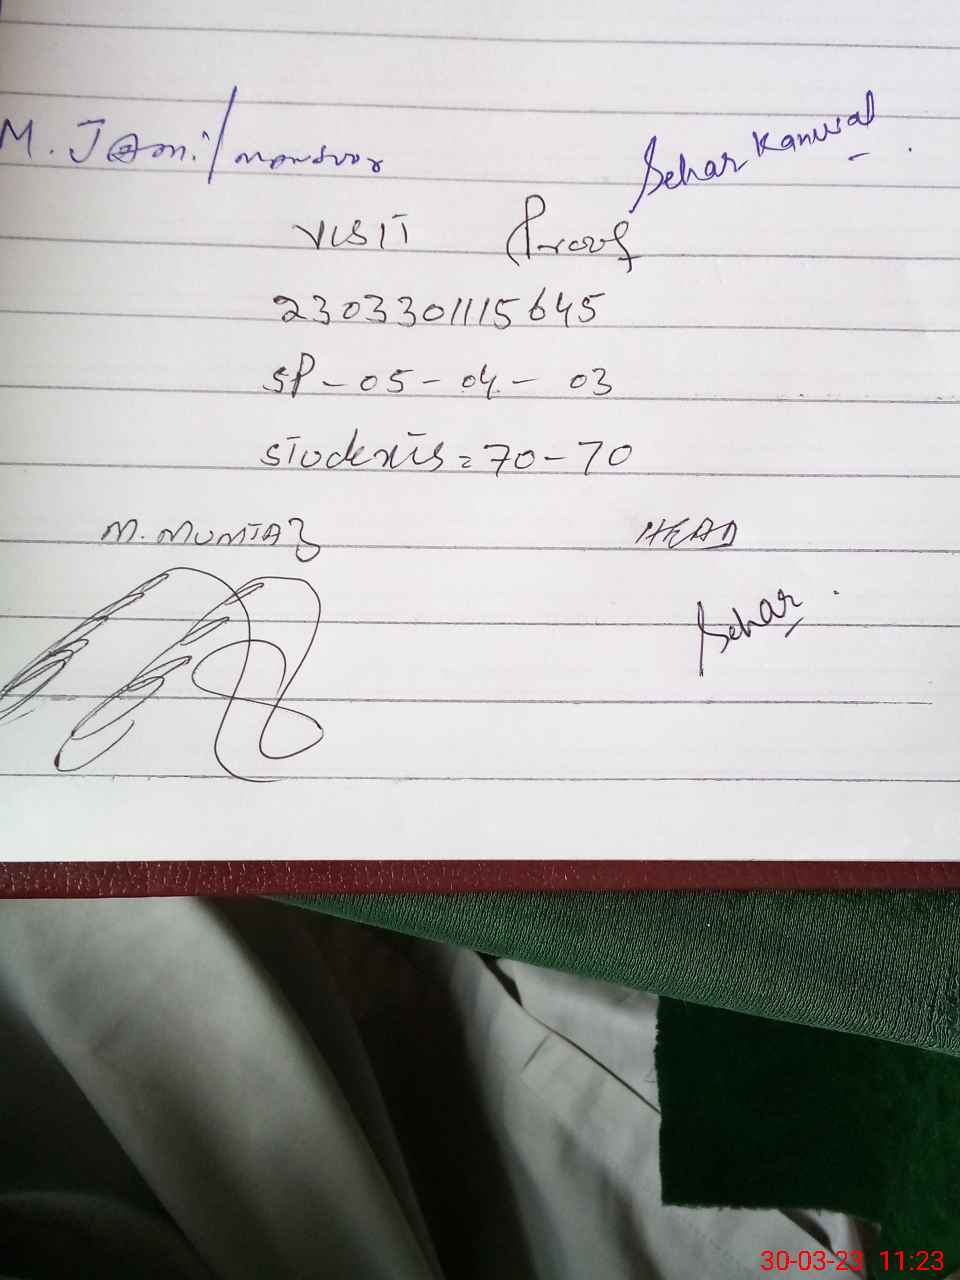 M. Jamil/mansoor
Sehar Kanwal
VISIT Proof
2303301115645
SP-05-04-03
STUdents = 70-70
M. MUMTAZ
HEAD
Sehar
30-03-23 11:23